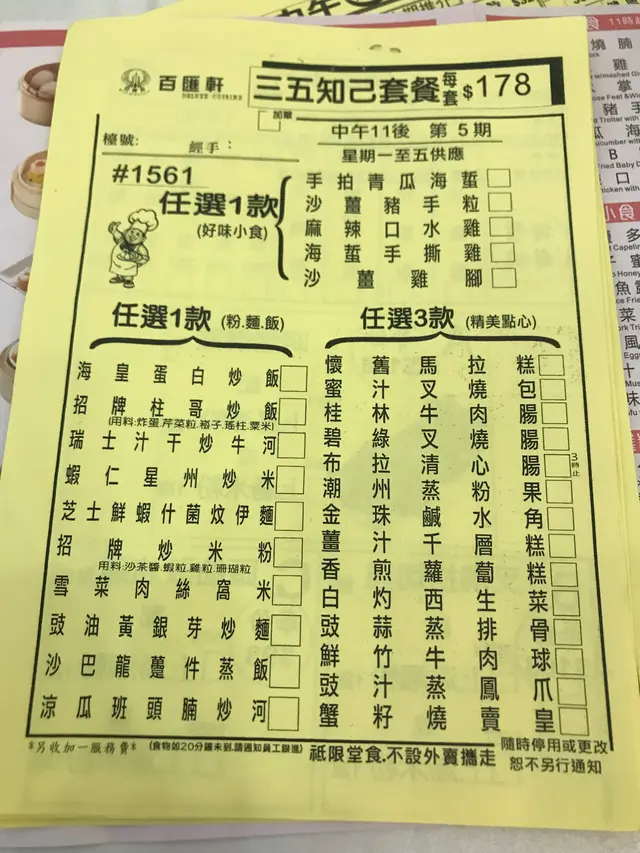 百匯軒
DELUXE CUISINE
三五知己套餐 每套 $178
加單
檯號:
經手:
中午11後 第5期
星期一至五供應
#1561
任選1款
(好味小食)
手拍青瓜海蜇
沙薑豬手粒
麻辣口水雞
海蜇手撕雞
沙薑雞腳
任選1款 (粉.麵.飯)
海皇蛋白炒飯
招牌柱哥炒飯
(用料:炸蛋.芹菜粒.裇子.瑤柱.粟米)
瑞士汁干炒牛河
蝦仁星州炒米
芝士鮮蝦什菌炆伊麵
招牌炒米粉
用料:沙茶醬.蝦粒.雞粒.珊瑚粒
雪菜肉絲窩米
豉油黃銀芽炒麵
沙巴龍躉件蒸飯
涼瓜班頭腩炒河
任選3款 (精美點心)
懷舊馬拉糕
蜜汁叉燒包
桂林牛肉腸
碧綠叉燒腸
布拉清心腸 3時止
潮州蒸粉果
金珠鹹水角
薑汁千層糕
香煎蘿蔔糕
白灼西生菜
豉蒜蒸排骨
鮮竹牛肉球
豉汁蒸鳳爪
蟹籽燒賣皇
*另收加一服務費* (食物如20分鐘未到,請通知員工跟進) 祗限堂食.不設外賣攜走
隨時停用或更改
恕不另行通知